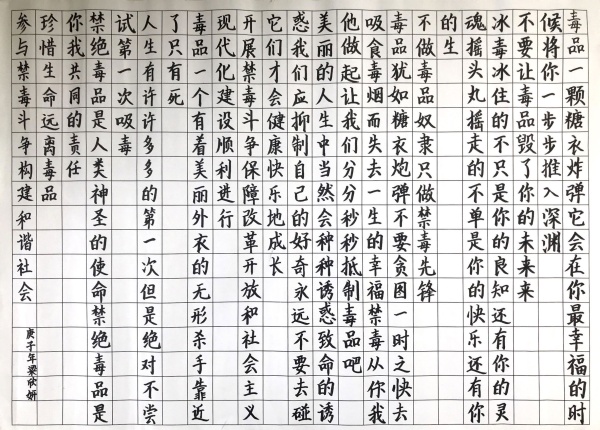 毒品一颗糖衣炸弹它会在你最幸福的时
候将你一步步推入深渊
不要让毒品毁了你的未来来
冰毒冰冻的不只是你的良知还有你的灵
魂摇头丸摇走的不单是你的快乐还有你
的生
不做毒品奴隶只做禁毒先锋
毒品犹如糖衣炮弹不要贪图一时之快去
吸食毒烟而失去一生的幸福禁毒从你我
他做起让我们分分秒秒抵制毒品吧
美丽的人生中当然会种种诱惑致命的诱
惑我们应抑制自己的好奇永远不要去碰
它们才会健康快乐地成长
开展禁毒斗争保障改革开放和社会主义
现代化建设顺利进行
毒品一个有着美丽外衣的无形杀手靠近
了只有死
人生有许许多多的第一次但是绝对不尝
试第一次吸毒
禁绝毒品是人类神圣的使命禁绝毒品是
你我共同的责任
珍惜生命远离毒品
参与禁毒斗争构建和谐社会
庚子年梁欣妍